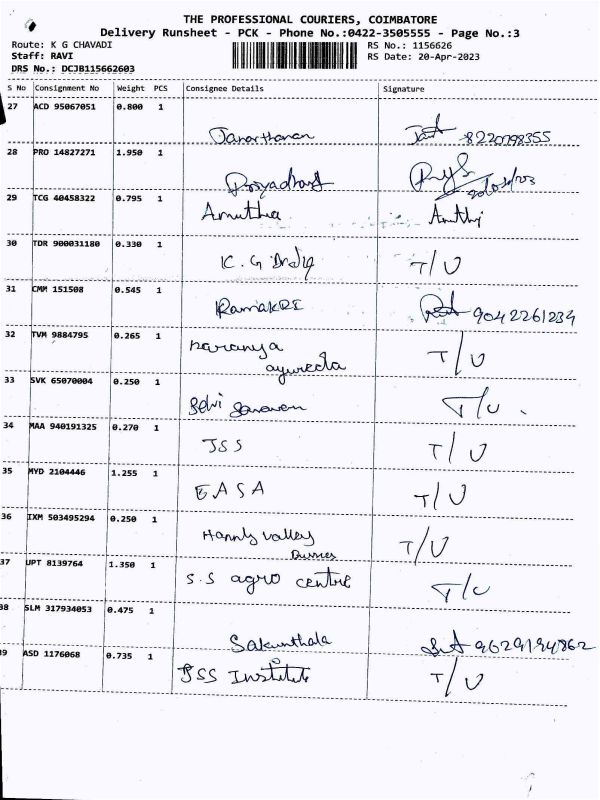 THE PROFESSIONAL COURIERS, COIMBATORE
Delivery Runsheet - PCK - Phone No.:0422-3505555 - Page No.:3
Route: K G CHAVADI RS No.: 1156626
Staff: RAVI RS Date: 20-Apr-2023
DRS No.: DCJB115662603
S No Consignment No Weight PCS Consignee Details Signature
27 ACD 95067051 0.800 1
Janarthanan
28 PRO 14827271 1.950 1
29 TCG 40458322 0.795 1
Amutha
30 TDR 900031180 0.330 1
K.G T/U
31 CMM 151508 0.545 1
9042261239
32 TVM 9884795 0.265 1
Karanya T/U
ayurveda
33 SVK 65070004 0.250 1
Selvi T/U
34 MAA 940191325 0.270 1
JSS T/U
35 MYD 2104446 1.255 1
EASA T/U
36 IXM 503495294 0.250 1
valley T/U
37 UPT 8139764 1.350 1
S.S agro centre T/U
38 SLM 317934053 0.475 1
Sakunthala 9629194862
39 ASD 1176068 0.735 1
JSS Institute T/U